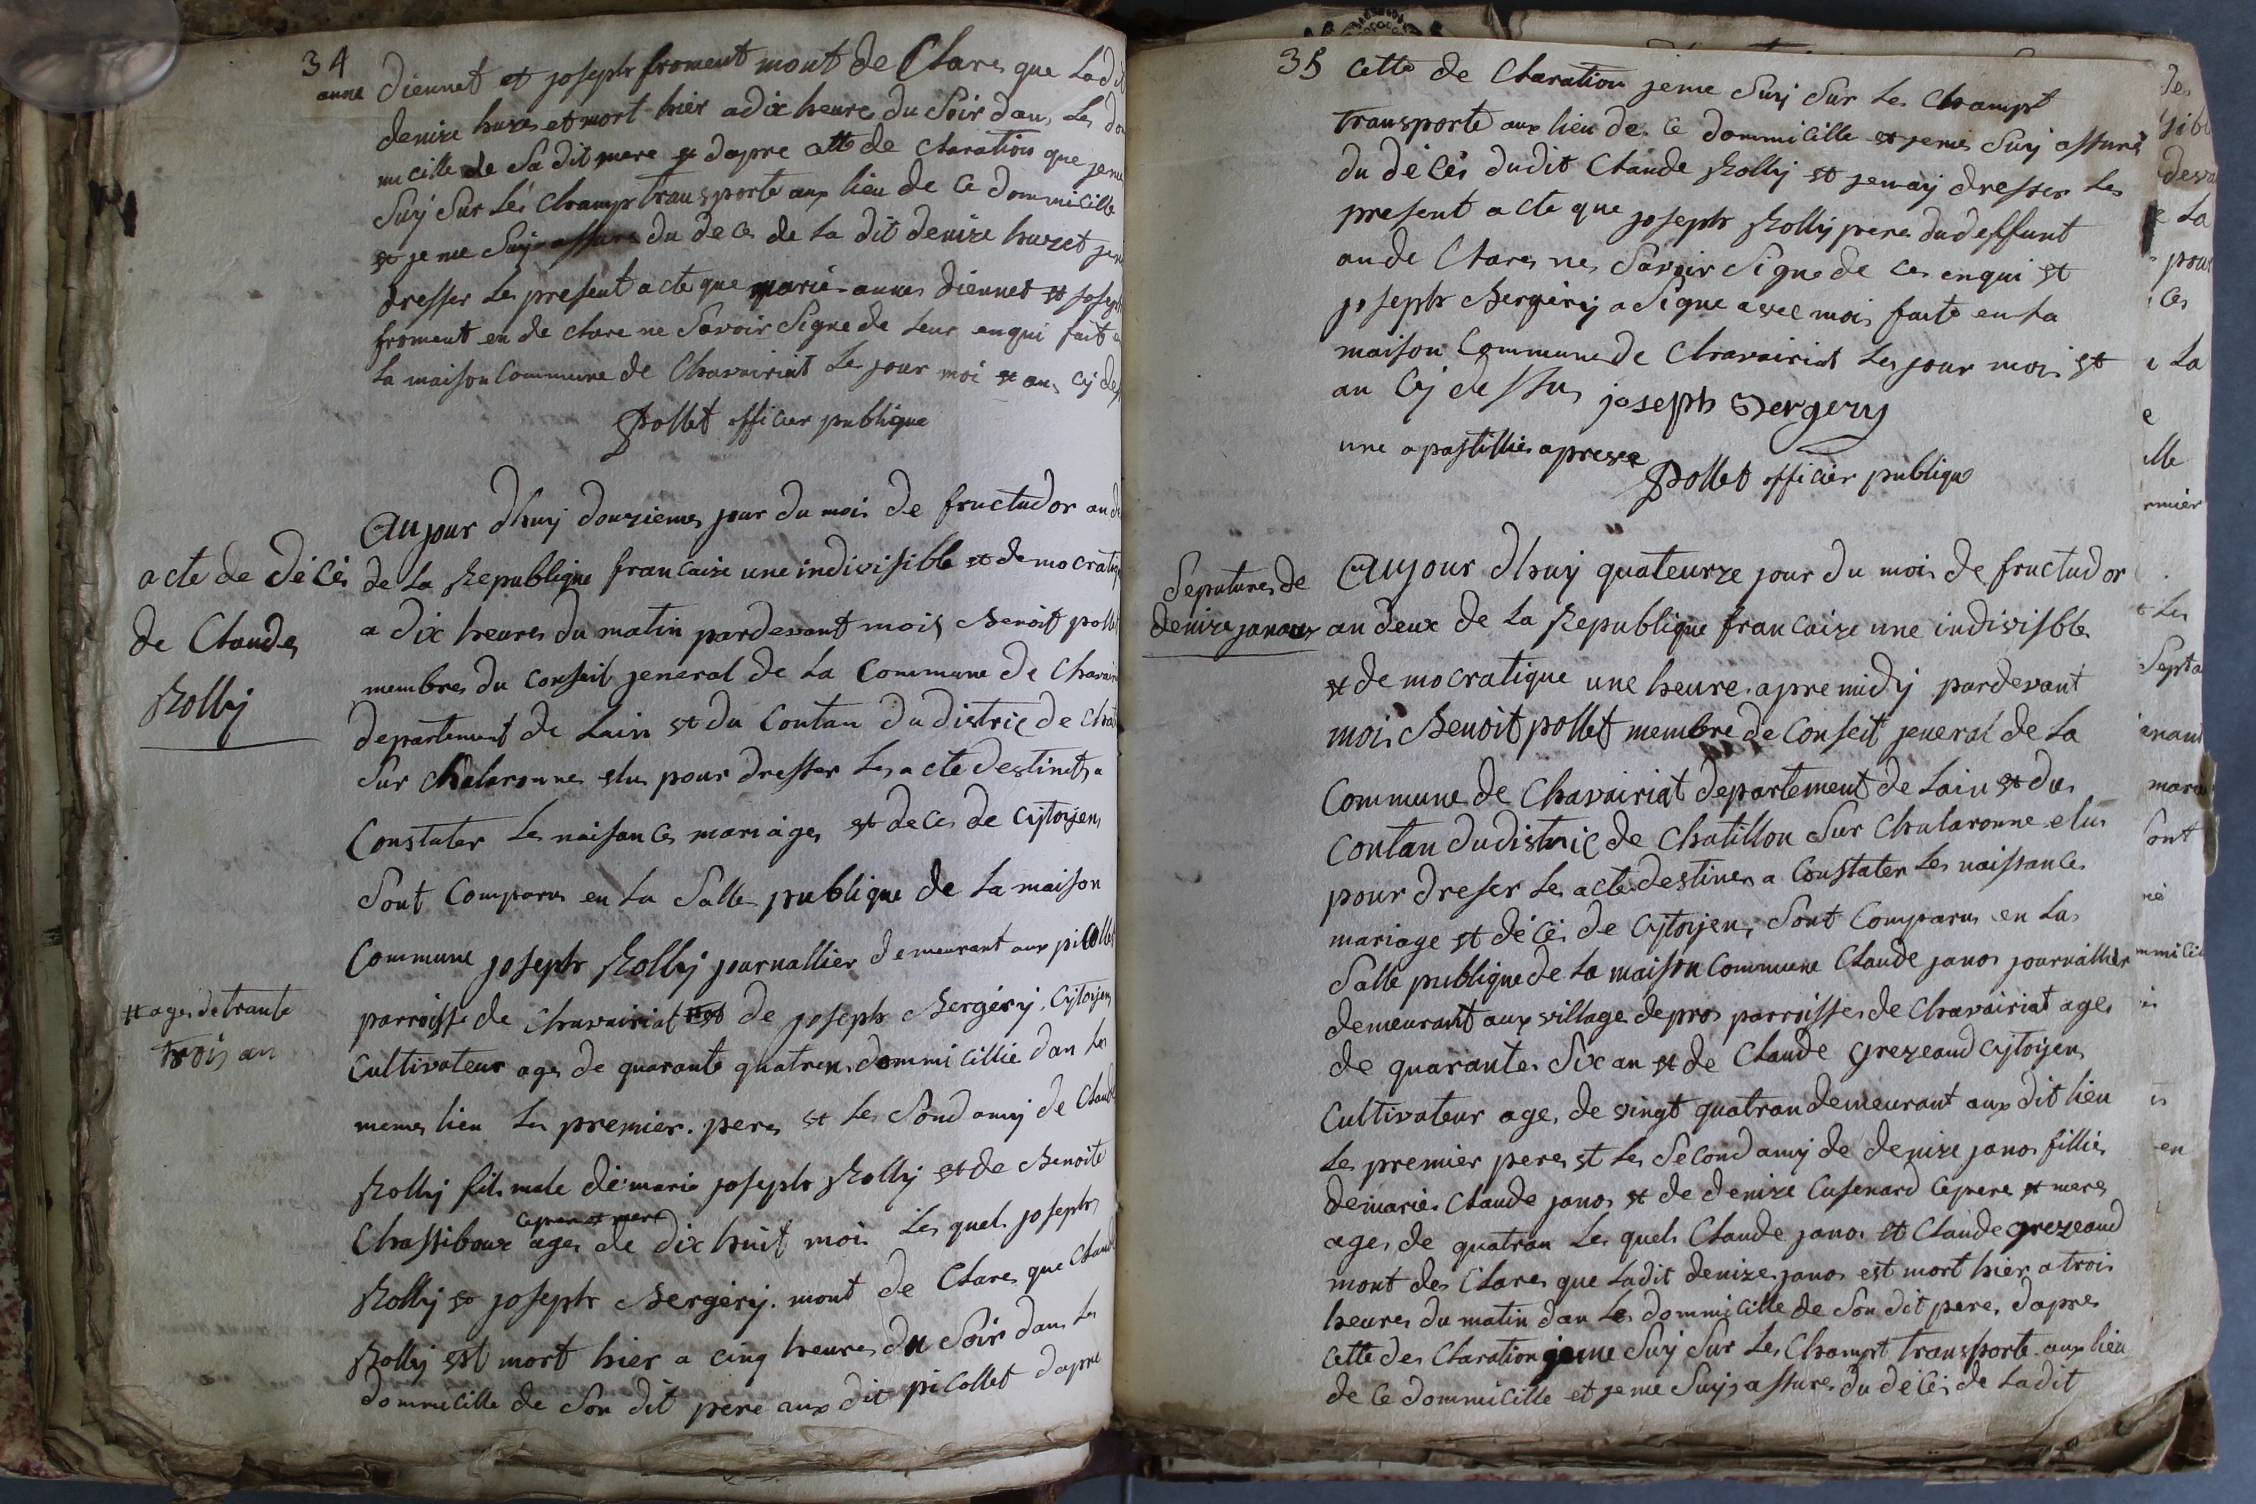 34
anne diennet et joseph froment mont de Clare que Ladit
denize huzet et mort hier a dix heure du Soir dans Le do
micille de Sa dit mere et dapre cette de Claration que jeme
Suÿ Sur Les Champ transporte aux lieu de ce dommicille
et je me Suÿ assure du dece de La dit denize huzet jen
dresser Le present acte que marie anne diennet et joseph
froment en de clare ne Savoir Signe de Leur enqui fait en
La maison Commune de Chavairiat Le jour moi et an cÿ des
Pollet officier publique
acte de décé
de Claude
Rollÿ
Aujour dhuÿ douzieme jour du mois de fructudor an de
de La Republique francaize une indivisible et democratiq
a dix heure du matin pardevant mois Benoit pollet
membre du Conseil jeneral de La Commune de Chavairi
departement de Lain et du Contan du distric de Chat
Sur Chalaronne elu pour dresser Les acte destinet a
Constater Les naisance mariage et dece de Cÿtoÿen
Sont Comparu en La Salle publique de La maison
Commune joseph Rollÿ journallier demeurant aux picollet
et age de trante
trois an
parroisse de Chavairiat et de joseph Bergérÿ Cÿtoÿen
Cultivateur age de quarante quatren dommicillié dan Le
meme lien Le premier pere et Le Sond amÿ de Claude
Rollÿ fils male de marie joseph Rollÿ et de Benoite
Chassiboux age de dix huit moi Les quel joseph
ce pere et mere
Rollÿ et joseph Bergérÿ mont de Clare que Claude
Rollÿ est mort hier a cinq heure du Soir dans Le
dommicille de Son dit pere aux dit picollet dapre
35 cette de Claration jeme Suÿ Sur Les Champt
transporte aux lieu de ce dommicille et jeme Suÿ assuré
du décé dudit Claude Rollÿ et jenaÿ dresser Le
present acte que joseph Rollÿ pere dudeffunt
an de Clare ne Savoir Signe de ce enqui et
joseph Bergérÿ a Signe avec moi faite en La
maison Commune de Chavairiat Les jour moi et
an Cÿ dessu joseph Bergerÿ
une apastillie aprevee
Pollet officier publique
Sepulture de
denize janos
Aujour dhuÿ quateurze jour du mois de fructudor
an deux de La Republique francaize une indivisble
et democratique une heure apremidÿ pardevant
moi Benoit pollet membre de Conseil jeneral de La
Commune de Chavairiat departement de Lain et du
Contan du distric de Chatillon Sur Chalaronne elu
pour dreser Le acte destine a Constater Les naissance
mariage et décé de Cÿtoÿen Sont Comparu en La
Salle publique de La maison Commune Claude janos journallier
demeurant aux village depros parroisse de Chavairiat age
de quarante Six an et de Claude grezeaud Cÿtoÿen
Cultivateur age de vingt quatran demeurant aux dit lieu
Le premier pere et Le Second amÿ de denize janos fillie
de marie Claude janos et de denize Cusenard ce pere et mere
age de quatran Les quel Claude janos et Claude grezeaud
mont de Clare que Ladit denize janos est mort hier a troi
heure du matin dan Le dommicille de Son dit pere dapre
cette de Claration jeme Suÿ Sur Les Champt transporte aux lieu
de ce dommicille et jeme Suÿ assure du décé de Ladit